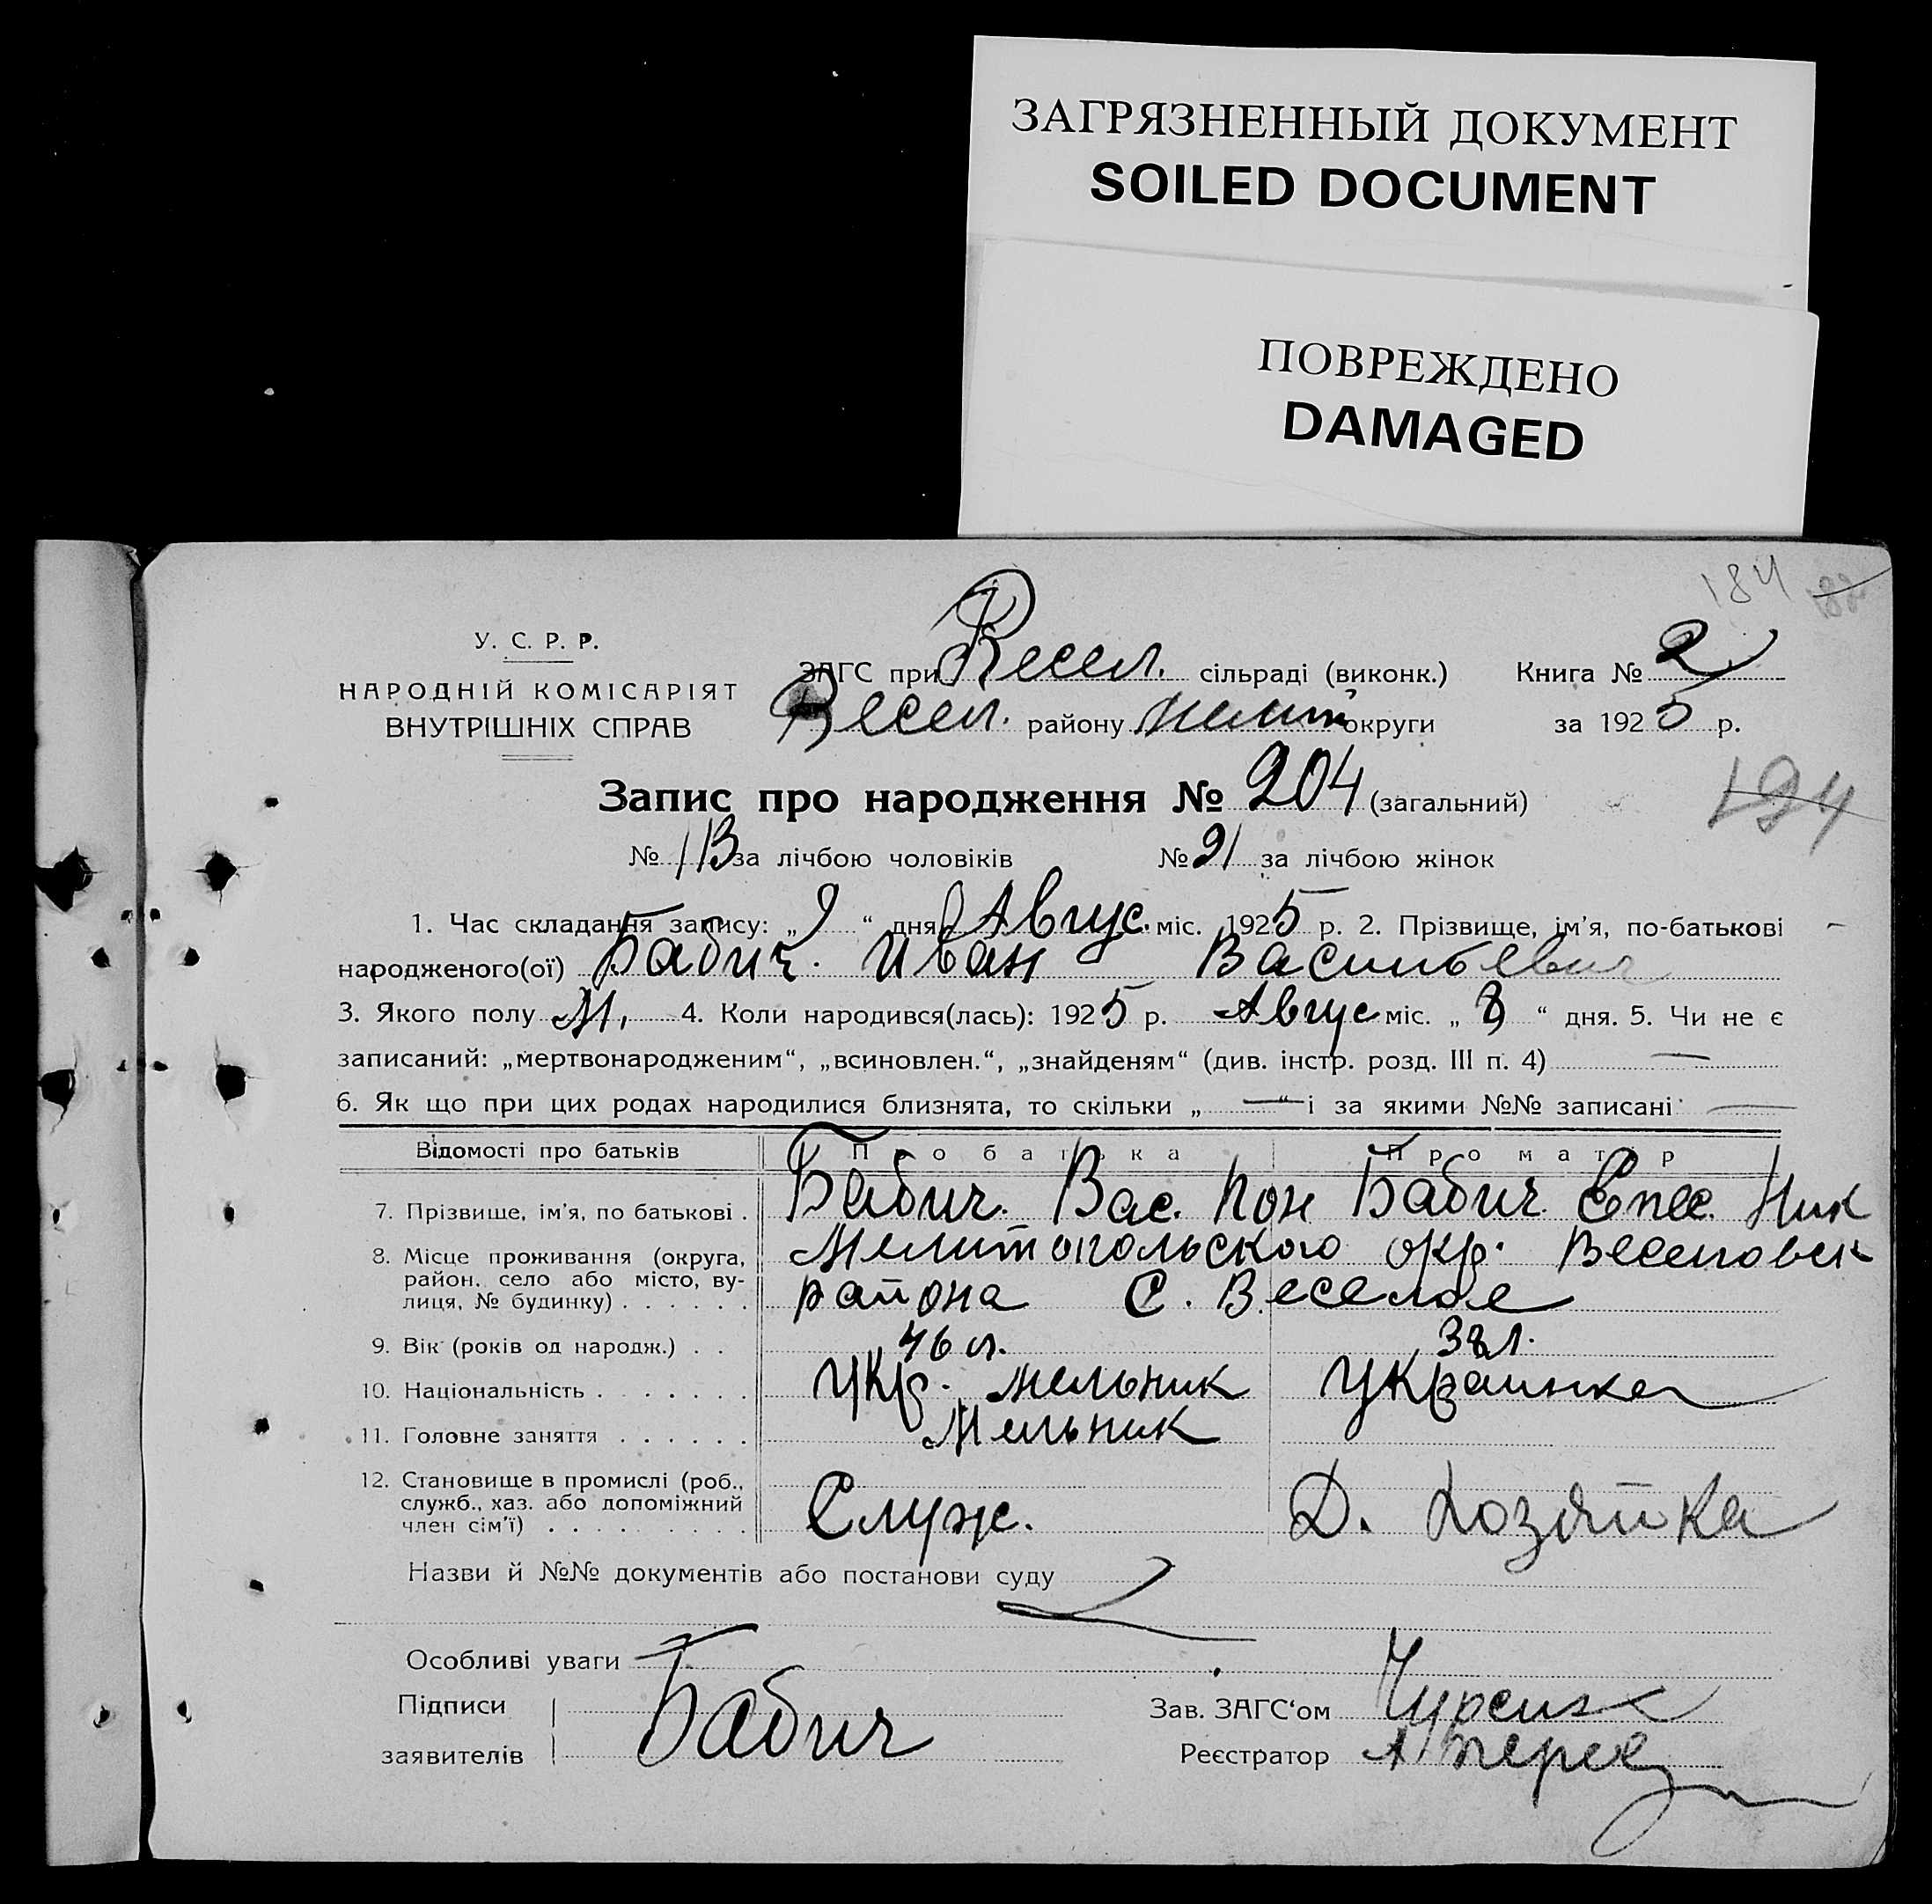 ЗАГРЯЗНЕННЫЙ ДОКУМЕНТ
SOILED DOCUMENT
ПОВРЕЖДЕНО
DAMAGED
184
У. С. Р. Р.
НАРОДНІЙ КОМІСАРІЯТ
ВНУТРІШНІХ СПРАВ
ЗАГС при Весел. сільраді (виконк.) Книга № 2
Весел. району Мелит округи за 1925 р.
Запис про народження № 204 (загальний)
194
№ 113 за лічбою чоловіків № 91 за лічбою жінок
1. Час складання запису: „9“ дня Авгус. міс. 1925 р. 2. Прізвище, ім'я, по-батькові
народженого(ої) Бабич. Иван Васильевич
3. Якого полу М. 4. Коли народився(лась): 1925 р. Авгус міс. „8“ дня. 5. Чи не є
записаний: „мертвонародженим“, „всиновлен.“, „знайденям“ (див. інстр. розд. III п. 4) —
6. Як що при цих родах народилися близнята, то скільки „—“ і за якими №№ записані —
Відомості про батьків Про батька Про матір
7. Прізвише, ім'я, по батькові . Бабич. Вас. Кон Бабич Ник
8. Місце проживання (округа, Мелитопольского окр. Веселовск
район, село або місто, ву-
лиця, № будинку) . . . . . . района С. Веселое
9. Вік (років од народж.) . . 46 л. 38 л.
10. Національність . . . . . . . Укр. мельник Украинка
11. Головне заняття . . . . . . Мельник
12. Становище в промислі (роб.,
служб., хаз. або допоміжний Служ. Д. Хозяйка
член сім'ї) . . . . . . . . .
Назви й №№ документів або постанови суду
Особливі уваги
Підписи
заявителів Бабич
Зав. ЗАГС'ом
Реєстратор